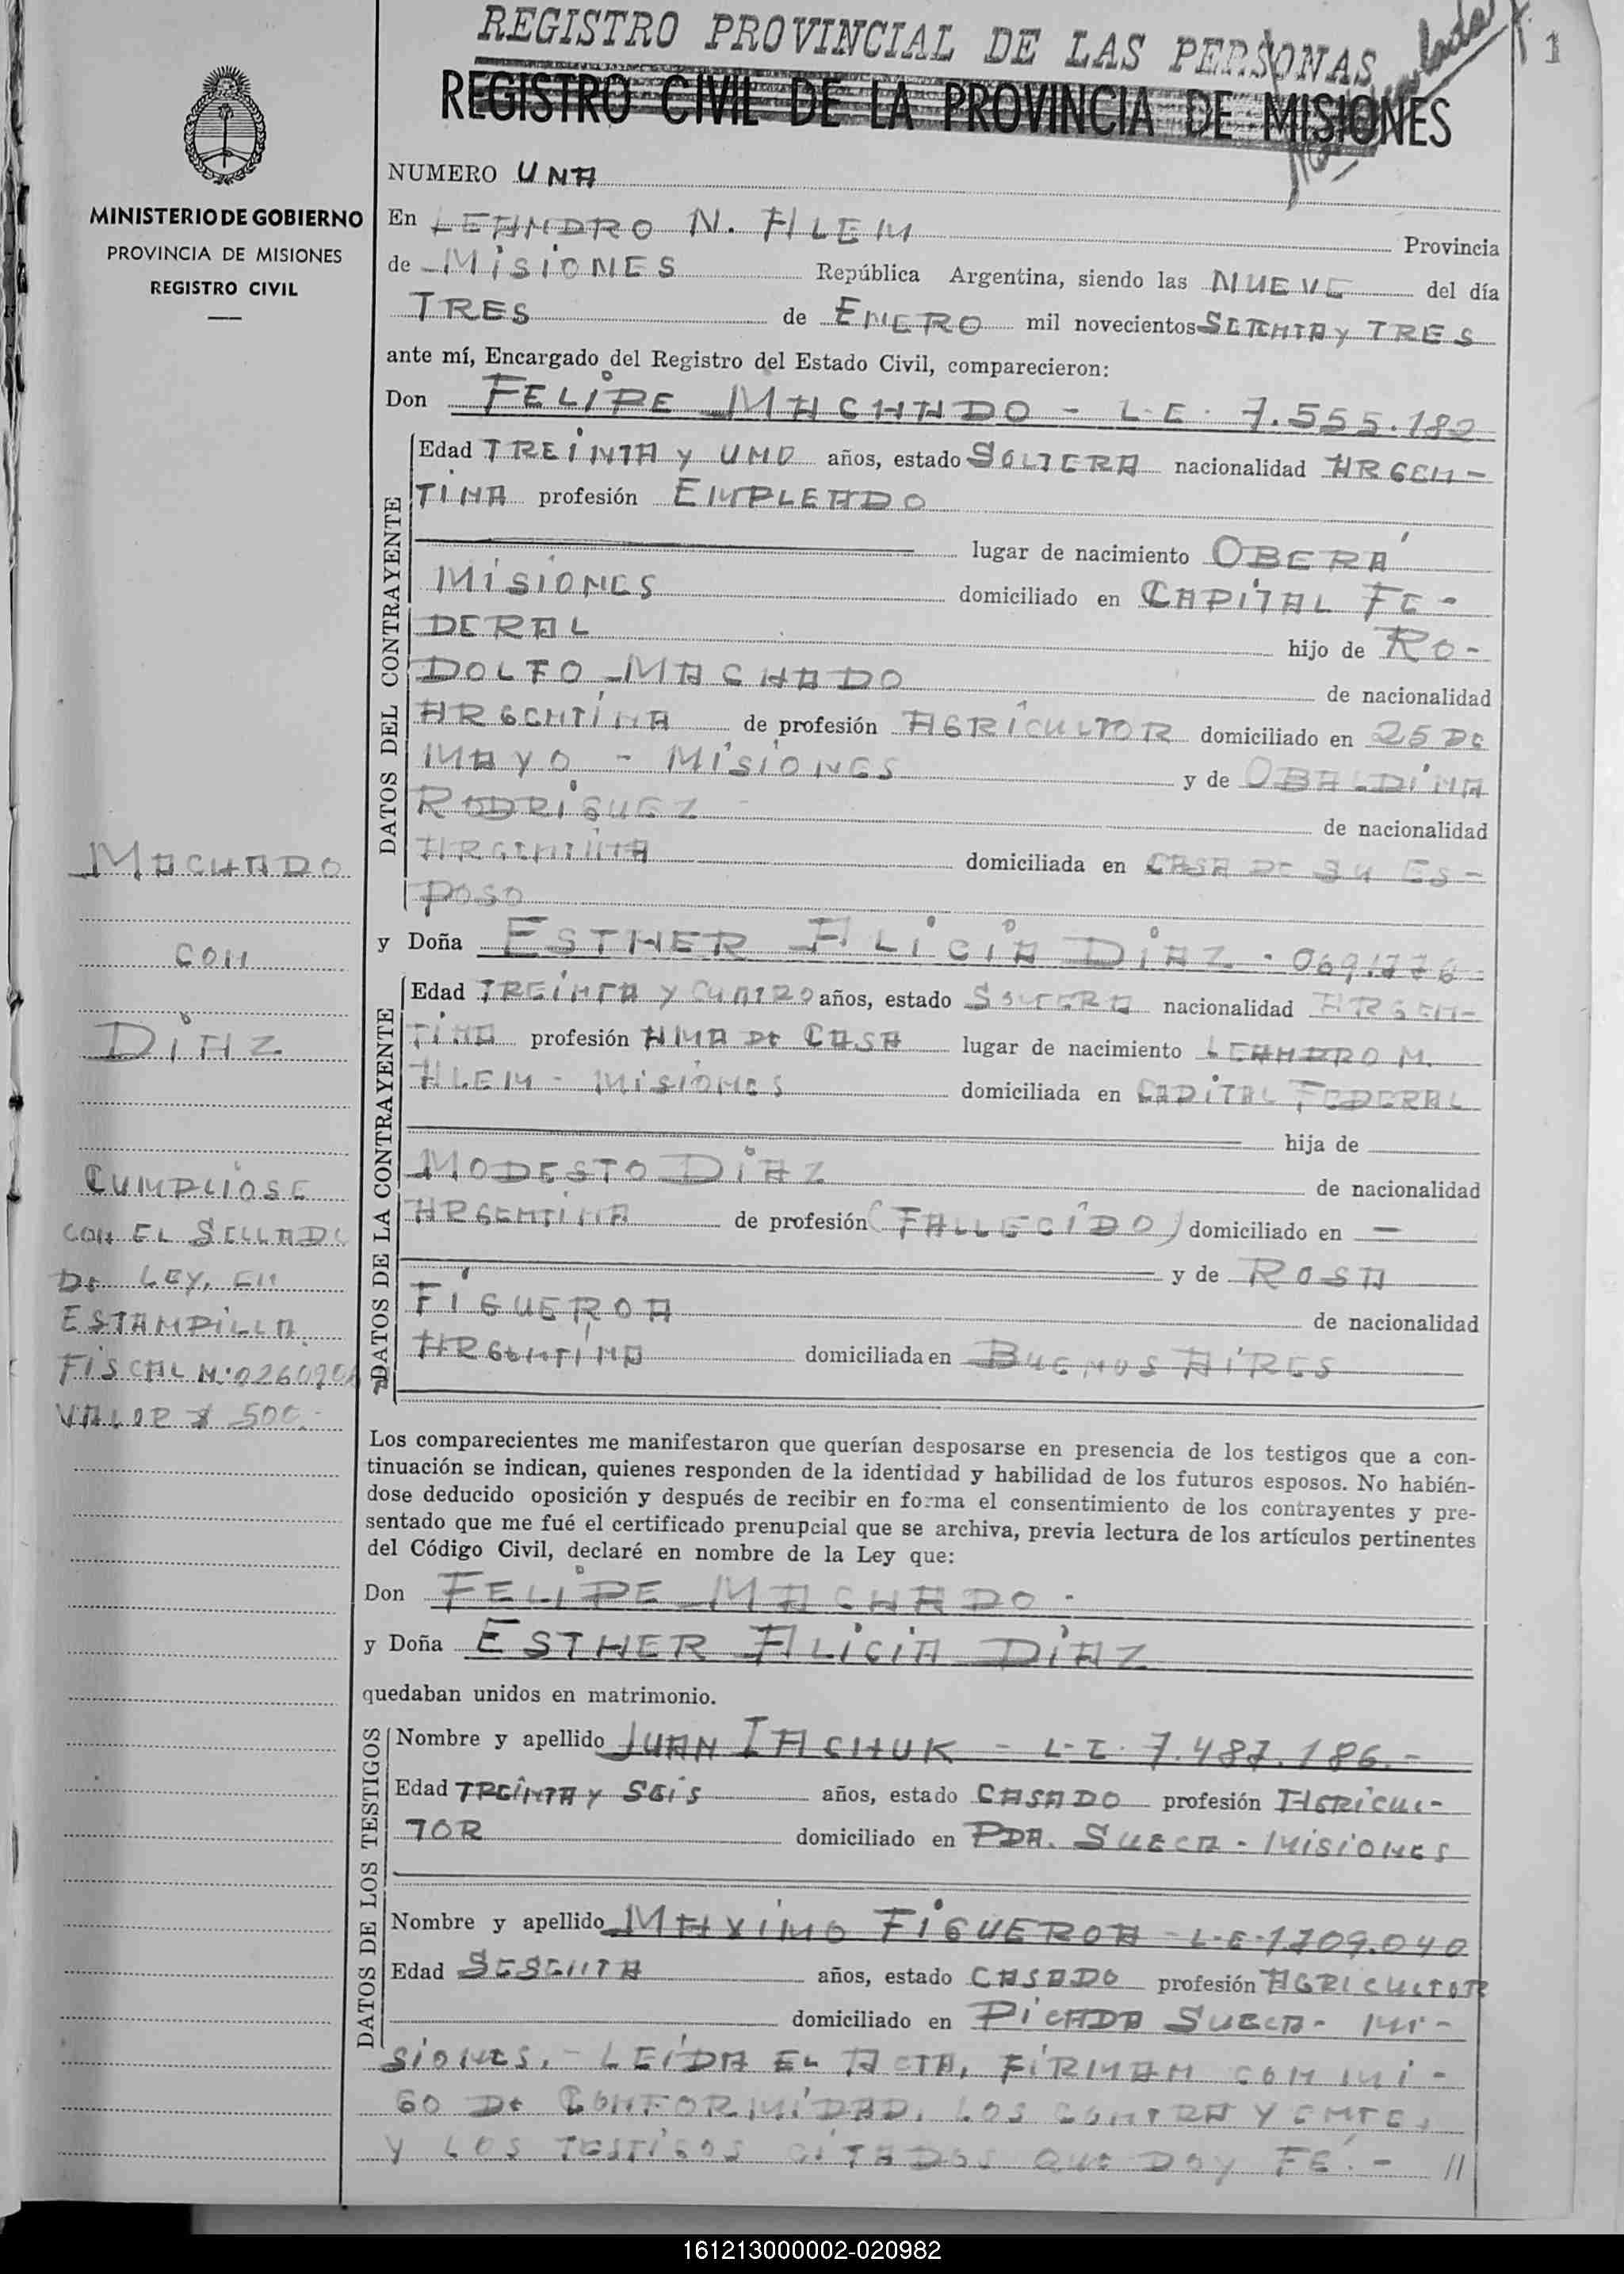 REGISTRO PROVINCIAL DE LAS PERSONAS
1
REGISTRO CIVIL DE LA PROVINCIA DE MISIONES
MINISTERIO DE GOBIERNO
PROVINCIA DE MISIONES
REGISTRO CIVIL
NUMERO UNA
En LEANDRO N. ALEM Provincia
de MISIONES República Argentina, siendo las NUEVE del día
TRES de ENERO mil novecientos SETENTA Y TRES
ante mí, Encargado del Registro del Estado Civil, comparecieron:
Don FELIPE MACHADO - L.E. 7.555.182
DATOS DEL CONTRAYENTE
Edad TREINTA Y UNO años, estado SOLTERA nacionalidad ARGEN-
TINA profesión EMPLEADO
lugar de nacimiento OBERÁ
MISIONES domiciliado en CAPITAL FE-
DERAL hijo de RO-
DOLFO MACHADO de nacionalidad
ARGENTINA de profesión AGRICULTOR domiciliado en 25 DE
MAYO - MISIONES y de OBALDINA
RODRIGUEZ de nacionalidad
ARGENTINA domiciliada en CASA DE SU ES-
POSO
MACHADO
CON
DIAZ
y Doña ESTHER ALICIA DIAZ - 069.776
DATOS DE LA CONTRAYENTE
Edad TREINTA Y CUATRO años, estado SOLTERA nacionalidad ARGEN-
TINA profesión AMA DE CASA lugar de nacimiento LEANDRO N.
ALEM - MISIONES domiciliada en CAPITAL FEDERAL
hija de
MODESTO DIAZ de nacionalidad
ARGENTINA de profesión (FALLECIDO) domiciliado en —
y de ROSA
FIGUEROA de nacionalidad
ARGENTINA domiciliada en BUENOS AIRES
CUMPLIOSE
CON EL SELLADO
DE LEY, EN
ESTAMPILLA
FISCAL N°
VALOR $ 500.-
Los comparecientes me manifestaron que querían desposarse en presencia de los testigos que a con-
tinuación se indican, quienes responden de la identidad y habilidad de los futuros esposos. No habién-
dose deducido oposición y después de recibir en forma el consentimiento de los contrayentes y pre-
sentado que me fué el certificado prenupcial que se archiva, previa lectura de los artículos pertinentes
del Código Civil, declaré en nombre de la Ley que:
Don FELIPE MACHADO -
y Doña ESTHER ALICIA DIAZ
quedaban unidos en matrimonio.
DATOS DE LOS TESTIGOS
Nombre y apellido JUAN IACHUK - L.E. 7.487.186.-
Edad TREINTA Y SEIS años, estado CASADO profesión AGRICUL-
TOR domiciliado en PDA. SUECA - MISIONES
Nombre y apellido MAXIMO FIGUEROA - L.E. 1.709.040
Edad SESENTA años, estado CASADO profesión AGRICULTOR
domiciliado en PICADA SUECA - MI-
SIONES. - LEIDA EL ACTA, FIRMAN CONMI-
GO DE CONFORMIDAD, LOS CONTRAYENTES
Y LOS TESTIGOS CITADOS QUE DOY FÉ. - //
161213000002-020982